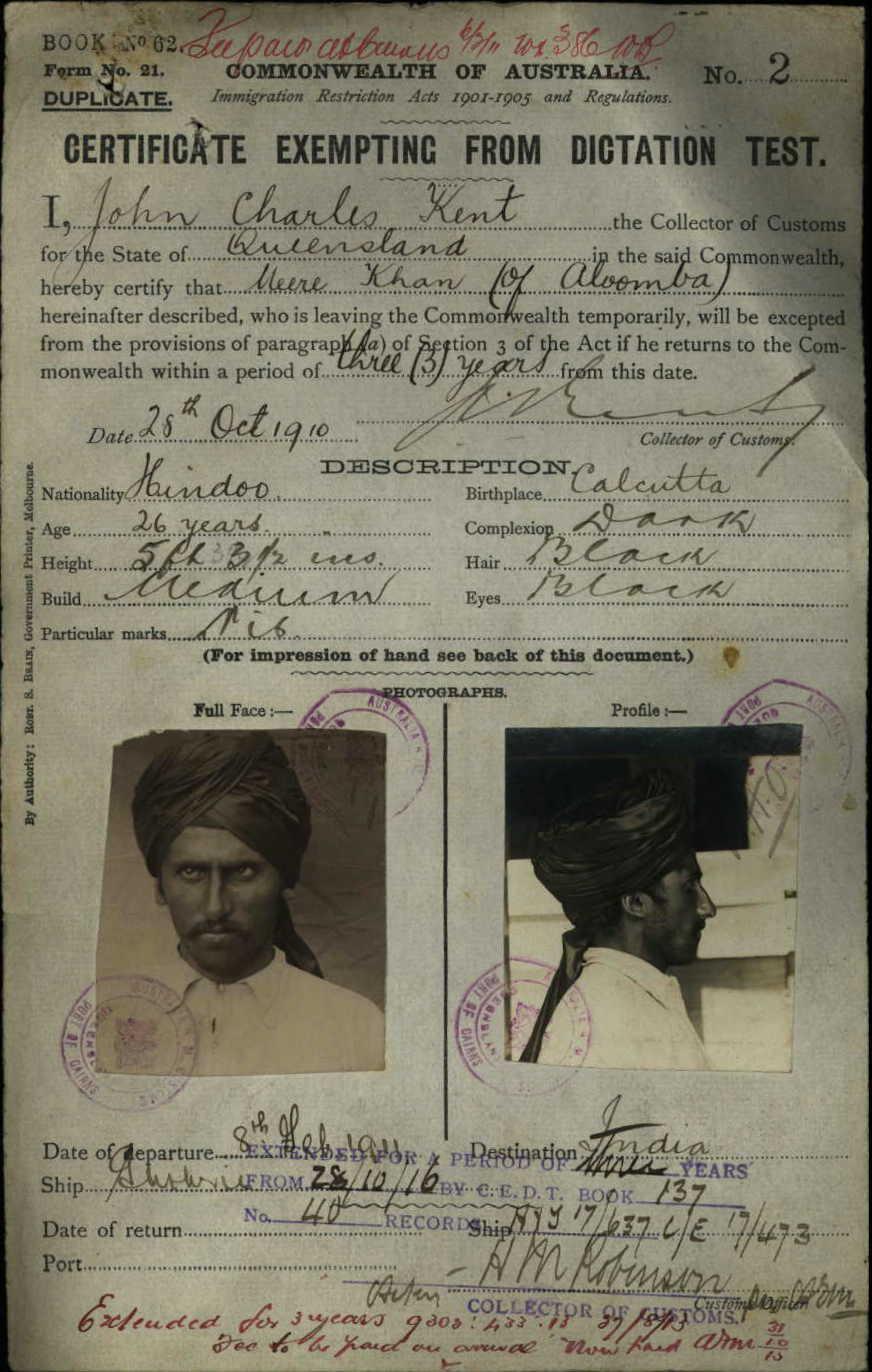 BOOK No 62.
Form No. 21.
COMMONWEALTH OF AUSTRALIA.
No. 2
DUPLICATE.
Immigration Restriction Acts 1901-1905 and Regulations.
CERTIFICATE EXEMPTING FROM DICTATION TEST.
I, John Charles Kent the Collector of Customs
for the State of Queensland in the said Commonwealth,
hereby certify that Meere Khan (of Aloomba)
hereinafter described, who is leaving the Commonwealth temporarily, will be excepted
from the provisions of paragraph (a) of Section 3 of the Act if he returns to the Com-
monwealth within a period of three (3) years from this date.
Date 28th Oct 1910
Collector of Customs.
DESCRIPTION.
Nationality Hindoo
Birthplace Calcutta
Age 26 years.
Complexion Dark
Height 5ft 3 1/2 ins.
Hair Black
Build Medium
Eyes Black
Particular marks
(For impression of hand see back of this document.)
PHOTOGRAPHS.
Full Face :—
Profile :—
By Authority: ROBT. S. BRAIN, Government Printer, Melbourne.
PORT OF CAIRNS
PORT OF CAIRNS
Date of departure 8th Feb 1911
Destination India
EXTENDED FOR A PERIOD OF three YEARS
Ship
FROM 28/10/16 BY C.E.D.T. BOOK 137
No. 40 RECORDS 17/637 C/E 17/473
Date of return
Ship
Port
H M Robinson
Customs Officer
COLLECTOR OF CUSTOMS.
Extended for 3 years
Fee to be paid on arrival Now paid